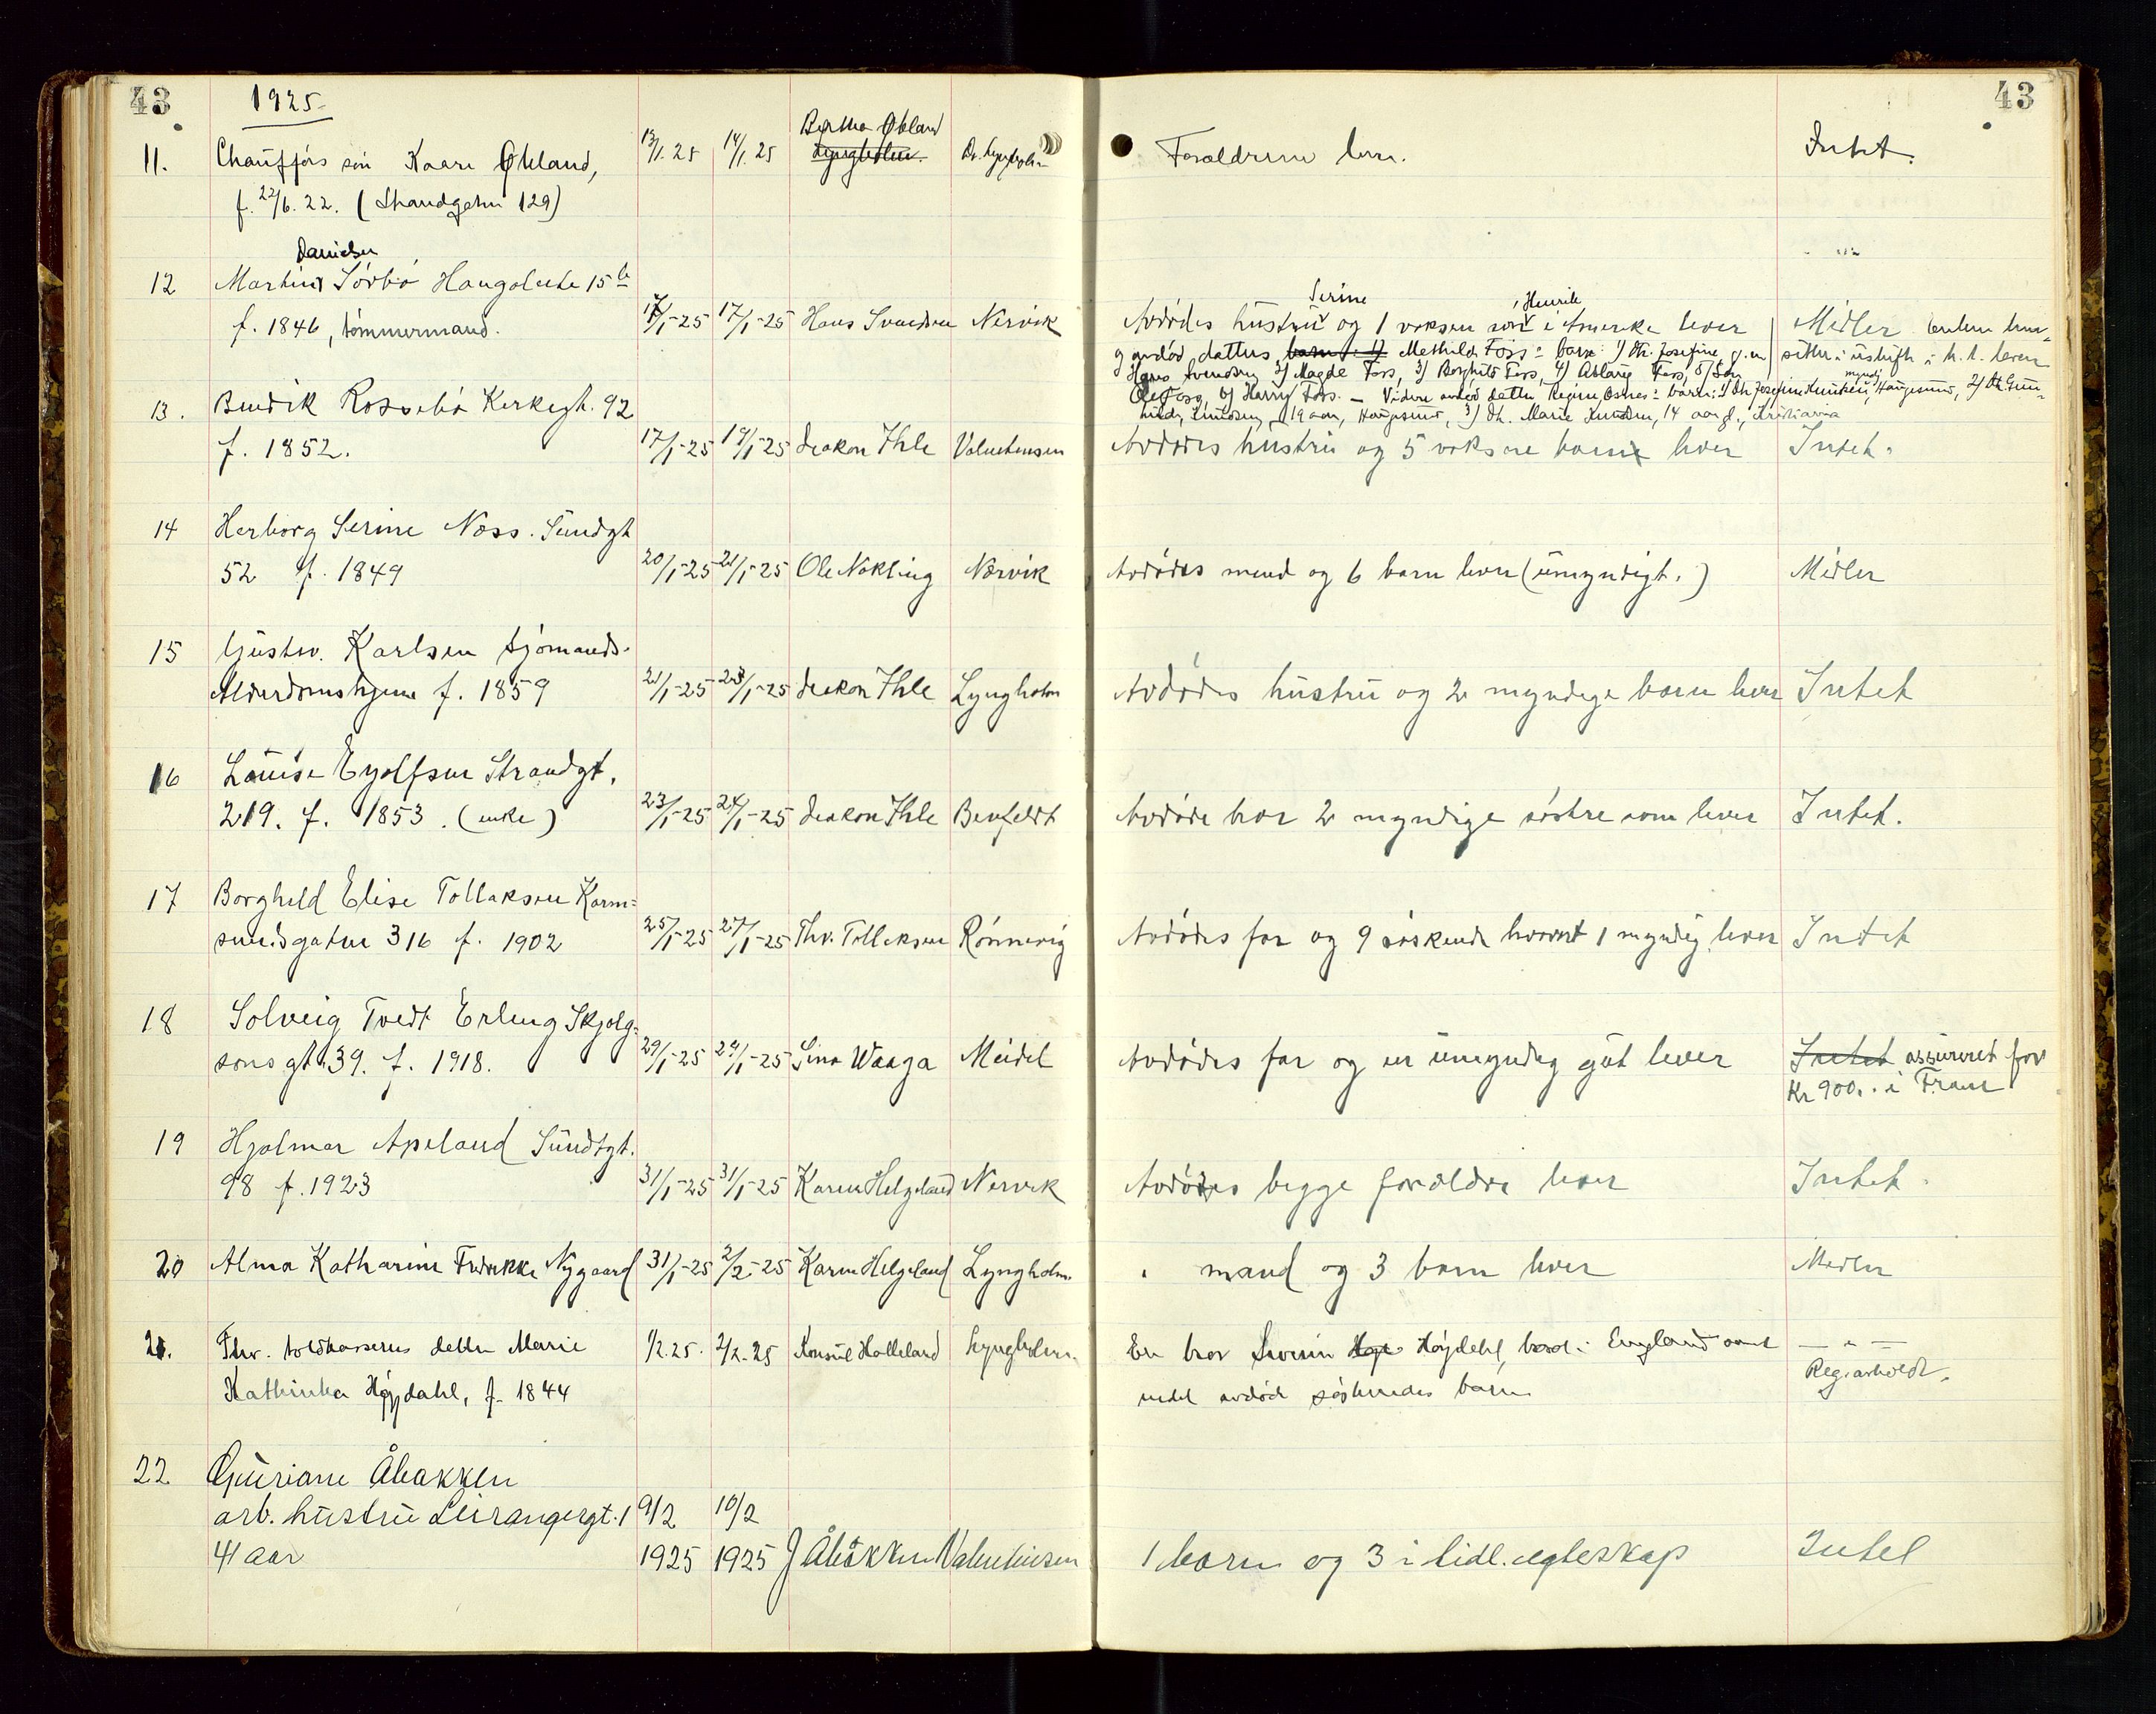 43
1925
43
11. Chaufførs søn Kaare Økland, 13/1. 25 14/1. 25 Bertha Økland Lyngholm. Dr. Lyngholm Forældrene lever. Intet.
f. 22/6. 22. (Strandgaten 129)
Danielsen
12 Martin Sørbø Haugaleite 15 b
f. 1846, tømmermand. 17/1-25 17/1-25 Hans Svendsen Nervik Avdødes hustru Serine og 1 voksen søn, Henrik i Amerika lever Midler enken hen-
og avdød datters barn: 1) Methilde Foss: barn: 1) Fr. Josefine g. m. sitter i uskifte
Hans Svendsen 2) Magda Foss, 3) Borghild Foss, 4) Aslaug Foss, 5) Søn
Ole Foss, 6) Harry Foss. — Videre avdød datter Regine Østnes: barn: 1) Josefine Knutsen, myndig, Haugesund, 2)
Knudsen, 19 aar, Haugesund, 3) Marie Knudsen, 14 aar g., Kristiania
13. Bendik Rossebø Kirkegt. 92
f. 1852. 17/1-25 19/1-25 diakon Ihle Valentinsen Avdødes hustru og 5 voksne barn lever Intet.
14 Herborg Serine Næss. Sundgt
52 f. 1849 20/1-25 21/1-25 Ole Nøkling Nervik Avdødes mand og 6 barn lever (umyndigt.) Midler
15 Gustav. Karlsen Sjømands-
Alderdomshjem f. 1859 21/1-25 23/1-25 diakon Ihle Lyngholm Avdødes hustru og 2 myndige barn lever Intet
16 Louise Eyolfsen Strandgt.
219. f. 1853. (enke) 23/1-25 24/1-25 diakon Ihle Benfeldt Avdøde har 2 myndige søstre som lever Intet.
17 Borghild Elise Tollaksen Karm-
sundsgaten 316 f. 1902 25/1-25 27/1-25 Thv. Tollaksen Rønnevig Avdødes far og 9 søskende hvorav 1 myndig lever Intet
18 Solveig Tvedt Erling Skjalg-
sons gt. 39. f. 1918. 29/1-25 29/1-25 Sina Waaga Meidel Avdødes far og en umyndig gut lever Intet assureret for
Kr 900.. i Fram
19 Hjalmar Apeland Sundtgt.
98 f. 1923 31/1-25 31/1-25 Karen Helgeland Nervik Avdødes begge forældre lever Intet.
20 Alma Katharine Fredrikke Nygaard 31/1-25 2/2-25 Karen Helgeland Lyngholm. " mand og 3 barn lever Midler
21. Fhv. toldkasserers datter Marie 1/2. 25. 2/2. 25 Konsul Halleland Lyngholm. En bror Severin Høydahl, bosat i England samt — " —
Kathinka Høydahl, f. 1844 endel avdøde søskendes barn Reg. avholdt.
22 Guriane Åbakken
arb. hustru Leirangergt. 1 9/2 10/2
41 aar 1925 1925 J Åbakken Valentinsen 1 barn og 3 i tidl. egteskap Intet